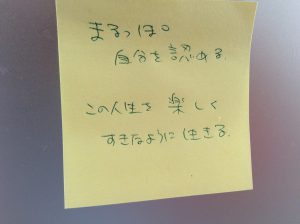 まるっぽ。
自分を認める。
この人生を楽しく
すきなように生きる。